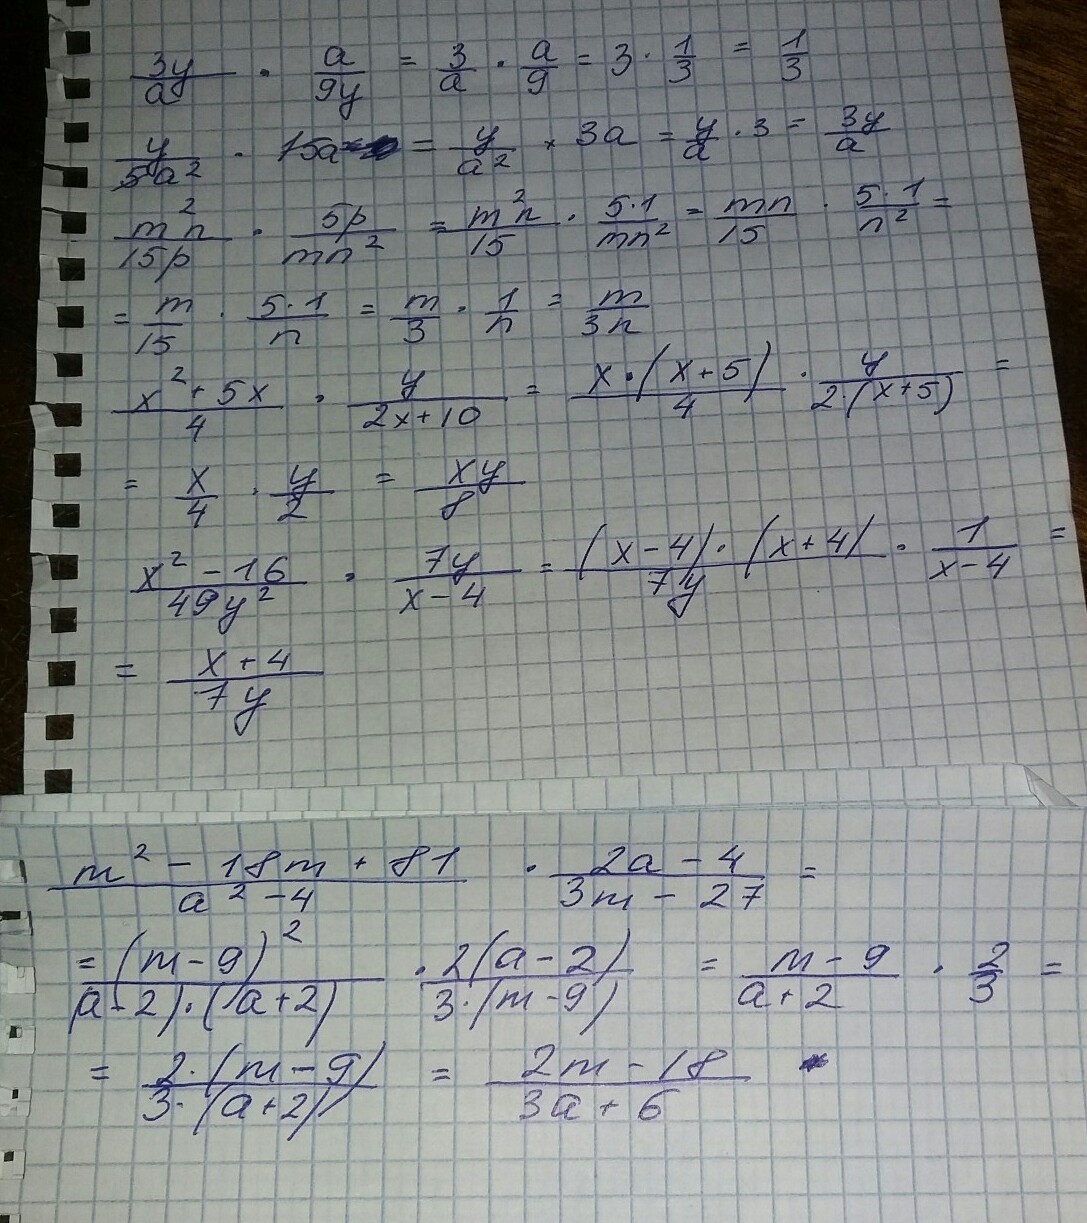 3y/ay · a/9y = 3/a · a/9 = 3 · 1/3 = 1/3
y/5a² · 15a = y/a² × 3a = y/a · 3 = 3y/a
m²n/15p · 5p/mn² = m²n/15 · 5·1/mn² = mn/15 · 5·1/n² =
= m/15 · 5·1/n = m/3 · 1/n = m/3n
x²+5x/4 · y/2x+10 = x·(x+5)/4 · y/2·(x+5) =
= x/4 · y/2 = xy/8
x²-16/49y² · 7y/x-4 = (x-4)·(x+4)/7y · 1/x-4 =
= x+4/7y
m²-18m+81/a²-4 · 2a-4/3m-27 =
= (m-9)²/(a-2)·(a+2) · 2(a-2)/3·(m-9) = m-9/a+2 · 2/3 =
= 2·(m-9)/3·(a+2) = 2m-18/3a+6